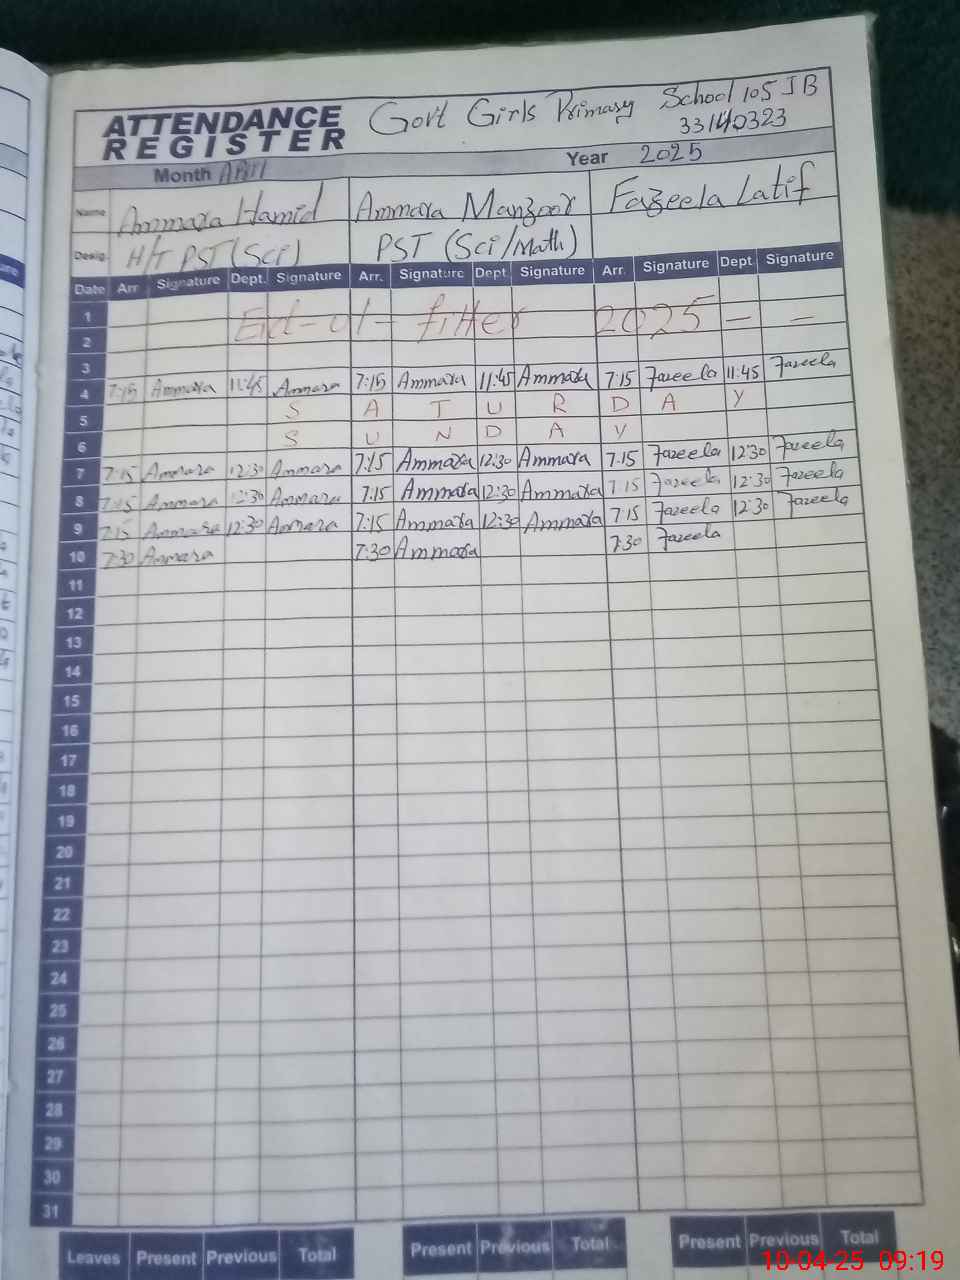 ATTENDANCE REGISTER Govt Girls Primary School 105 JB
33140323
Month April Year 2025
Name Ammara Hamid Ammara Manzoor Fazeela Latif
Desig. H/T PST (Sci) PST (Sci/Math)
Date Arr Signature Dept. Signature Arr. Signature Dept. Signature Arr. Signature Dept. Signature
1
Eid-ul-fitter 2025 - -
2
3
4 7:15 Ammara 11:45 Ammara 7:15 Ammara 11:45 Ammara 7:15 Fazeela 11:45 Fazeela
5 S A T U R D A Y
6 S U N D A Y
7 7:15 Ammara 12:30 Ammara 7:15 Ammara 12:30 Ammara 7:15 Fazeela 12:30 Fazeela
8 7:15 Ammara 12:30 Ammara 7:15 Ammara 12:30 Ammara 7:15 Fazeela 12:30 Fazeela
9 7:15 Ammara 12:30 Ammara 7:15 Ammara 12:30 Ammara 7:15 Fazeela 12:30 Fazeela
10 7:30 Ammara 7:30 Ammara 7:30 Fazeela
11
12
13
14
15
16
17
18
19
20
21
22
23
24
25
26
27
28
29
30
31
Leaves Present Previous Total Present Previous Total Present Previous Total
10-04-25 09:19